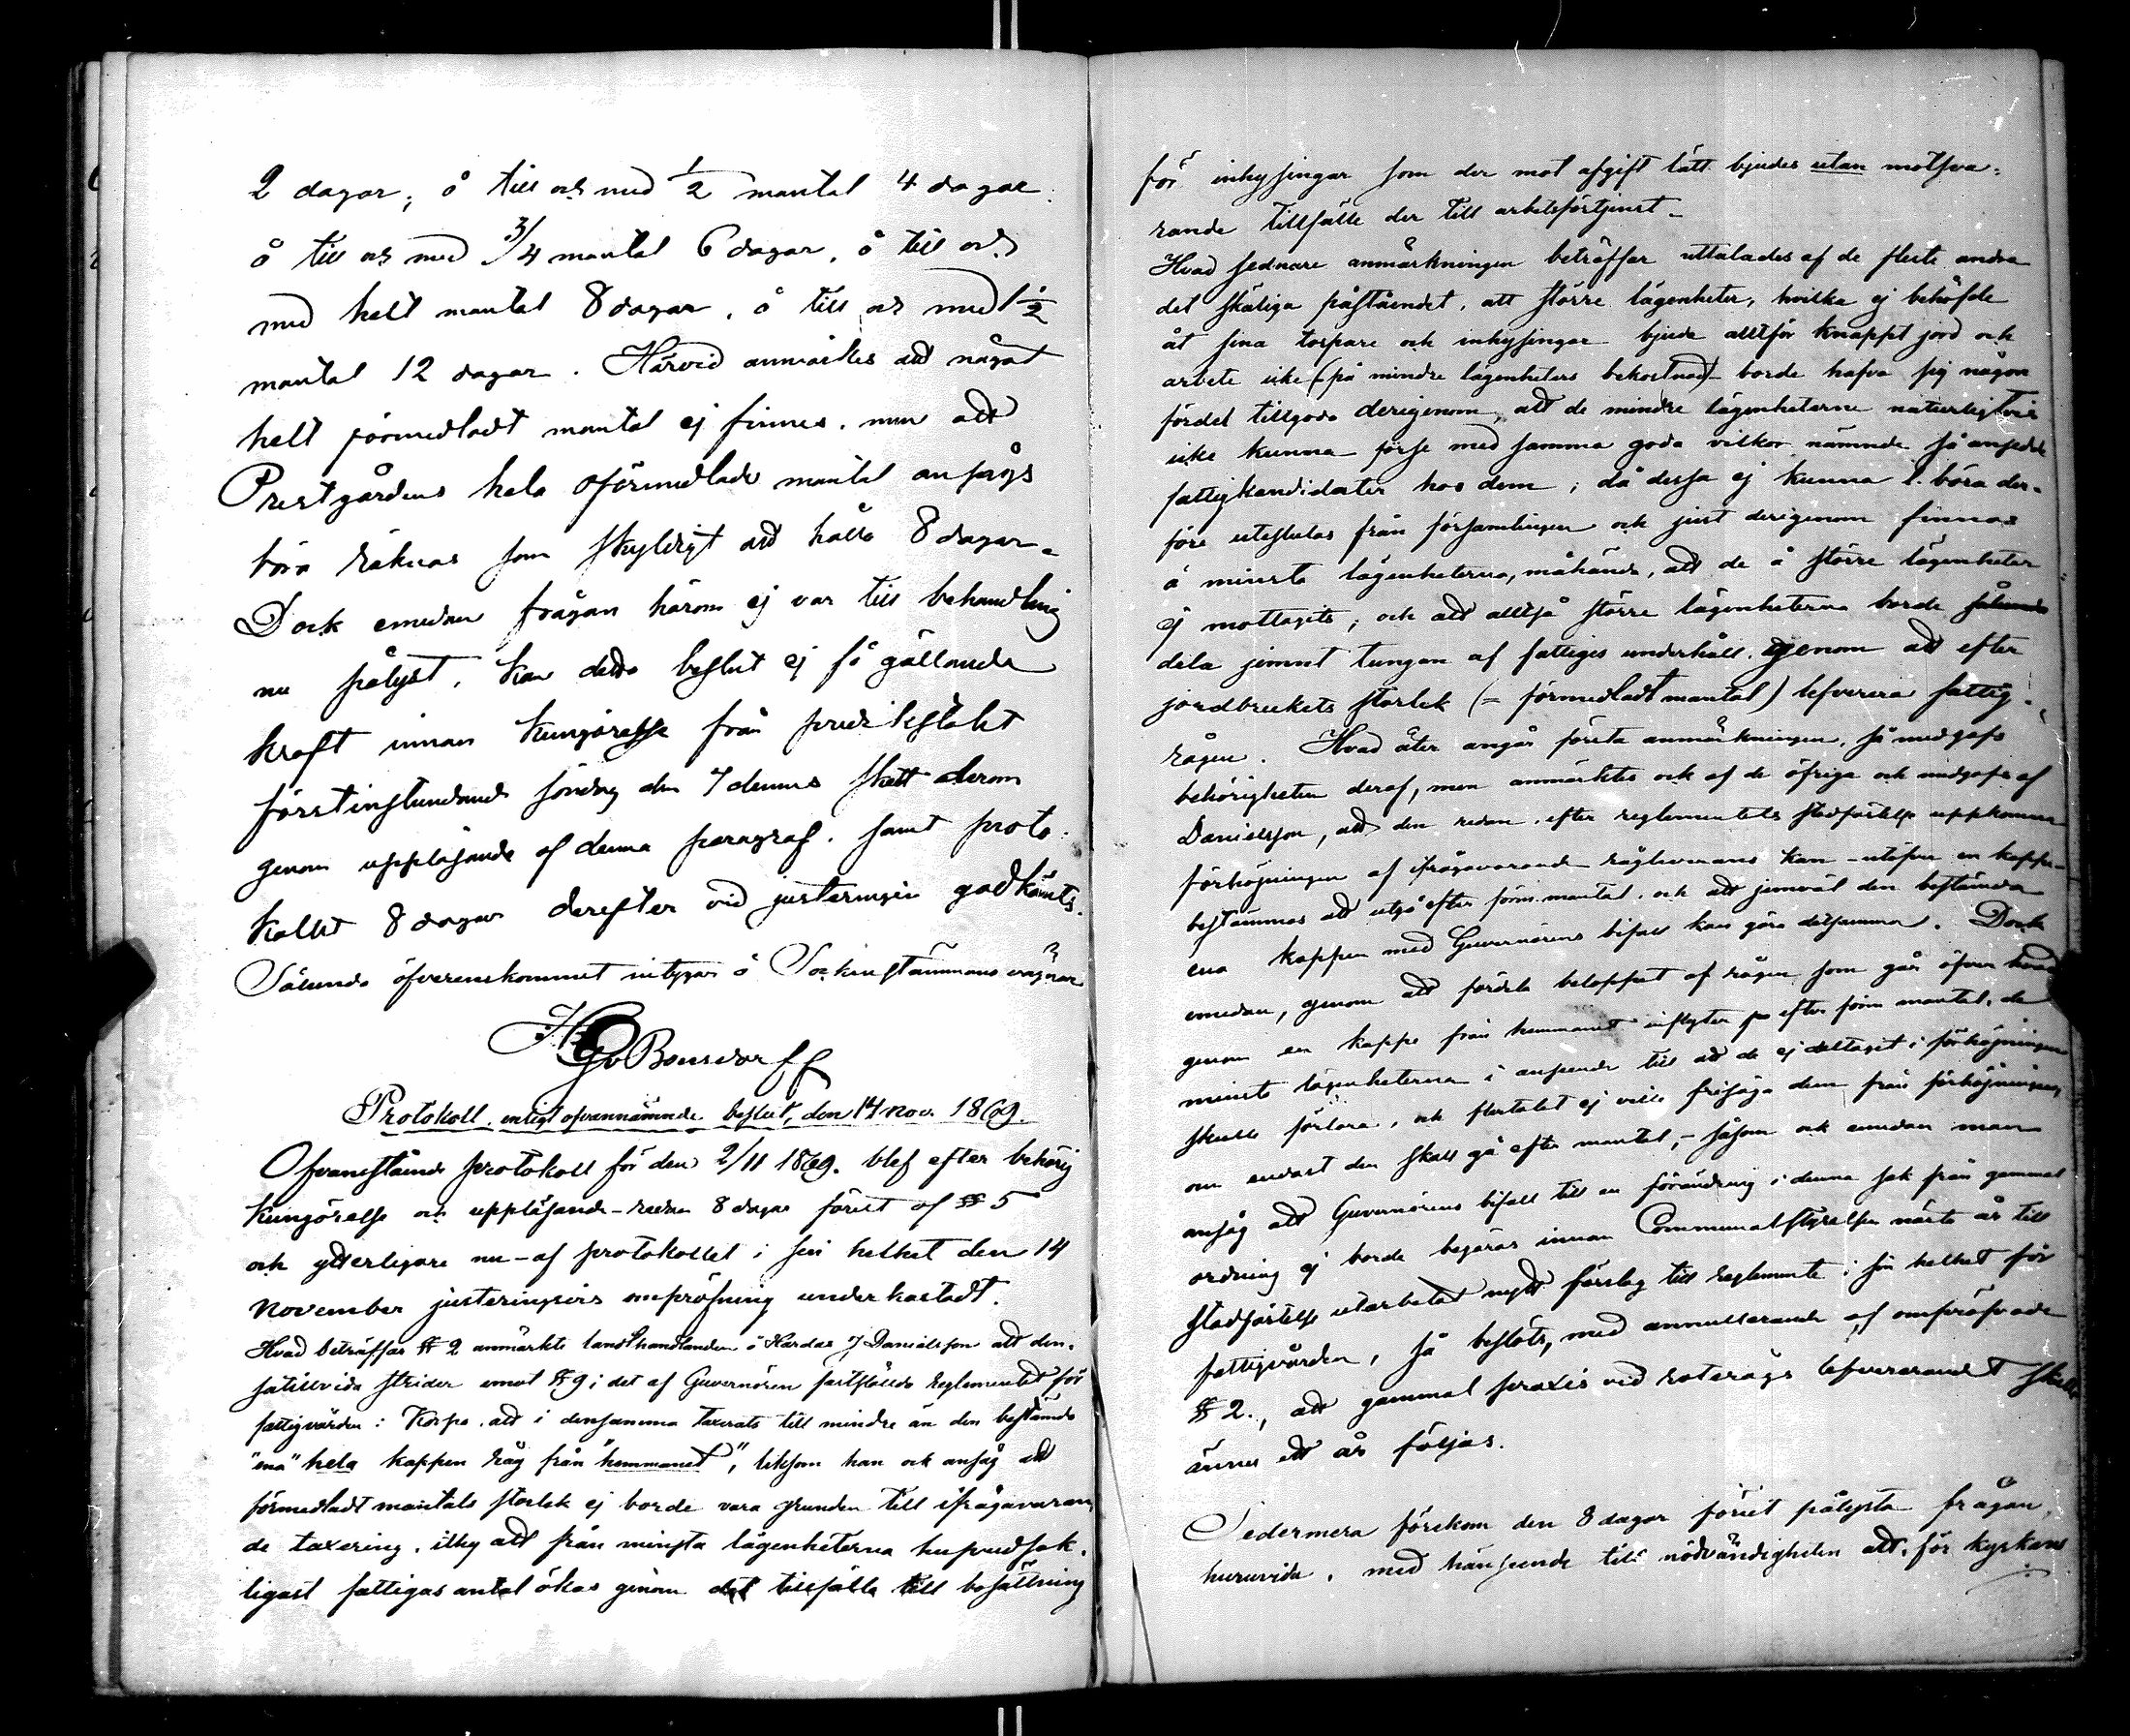 2 dagar, å till och med 1/2 mantal 4 dagar.
å till och med 3/4 mantal 6 dagar, å till och
med helt mantal 8 dagar, å till och med 1 1/2
mantal 12 dagar. Härvid anmärktes att något
helt förmedladt mantal ej finnes, men att
Prestgårdens hela oförmedlade mantal ansågs
böra räknas som skyldigt att hålla 8 dagar.
Dock emedan frågan härom ej var till behandling
nu pålyst, kan detta beslut ej få gällande
kraft innan kungörelse från predikstolet
förstinstundande söndag den 7 dennes skett derom
genom uppläsande af denna paragraf, samt proto-
kollet 8 dagar derefter vid justeringen godkänts.
Sålunda öfverenskommet intygar å Sockenstämmans vägnar
Bonsdorff
Protokoll, enligt ofvannämnde beslut, den 14 Nov. 1869.
Ofvanstående protokoll för den 2/11 1869. blef efter behörig
kungörelse och uppläsande - redan 8 dagar förut af § 5
och ytterligare nu - af protokollet i sin helhet den 14
November justeringsvis ompröfning underkastadt.
Hvad beträffar § 2 anmärkte landthandlanden å Kardas J Danielsson att den
såtillvida strider emot § 9 i det af Guvernören fastställda reglementet för
fattigvården i Korpo, att i densamma taxerats till mindre än den bestämda
"ena" hela kappen råg från "hemmanet", liksom han ock ansåg att
förmedladt mantals storlek ej borde vara grunden till ifrågavaran-
de taxering, ity att från minsta lägenheterna hufvudsak-
ligast fattigas antal ökas genom det tillfälle till bosättning
för inhysingar som der mot afgift lätt bjudes utan motsva-
rande tillfälle der till arbetsförtjenst.
Hvad sednare anmärkningen beträffar uttalades af de flesta andra
det skäliga påståendet, att större lägenheter, hvilka ej behöfde
åt sina torpare och inhysingar bjuda alltför knappt jord och
arbete icke (på mindre lägenheters bekostnad) borde hafva sig någon
fördel tillgodo derigenom, att de mindre lägenheterna naturligtvis
icke kunna förse med samma goda vilkor nämnde så ansedde
fattigkandidater hos dem; då dessa ej kunna l. böra der-
före uteslutas från församlingen och just derigenom finnas
å minsta lägenheterna, måhända, att de å större lägenheter
ej mottagits; och att alltså större lägenheterna borde sålunda
dela jemnt tungan af fattiges underhåll, genom att efter
jordbrukets storlek (= förmedladt mantal) lefverera fattig-
rågen. Hvad åter angår första anmärkningen, så medgafs
behörigheten deraf, men anmärktes ock af de öfriga och medgafs af
Danielsson, att den redan efter reglementets stadfästelse uppkomna
förhöjningen af ifrågavarande rågleverans kan - utöfver en kappe -
bestämmas att utgå efter förm. mantal, och att jemväl den bestämda
ena kappen med Guvernörens bifall kan göra detsamma. Dock
emedan, genom att fördela beloppet af rågen som går öfver hvad
genom en kappe från hemmanet inflyter efter förm mantal, de
minsta lägenheterna i anseende till att de ej deltagit i förhöjningen
skulle förlora, och flertalet ej ville frisäga dem från förhöjningen,
om endast den skall gå efter mantal, - såsom ock emedan man
ansåg att Guvernörens bifall till en förändring i denna sak från gammal
ordning ej borde begäras innan Communalstyrelsen nästa år till
stadfästelse utarbetat nytt förslag till reglemente i sin helhet för
fattigvården, så beslöts, med annullerande af ompröfvade
§ 2., att gammal praxis vid roterågs lefvererandet skulle
ännu ett år följas.
Sedermera förekom den 8 dagar förut pålysta frågan,
huruvida, med hänseende till nödvändigheten att, för kyrkans